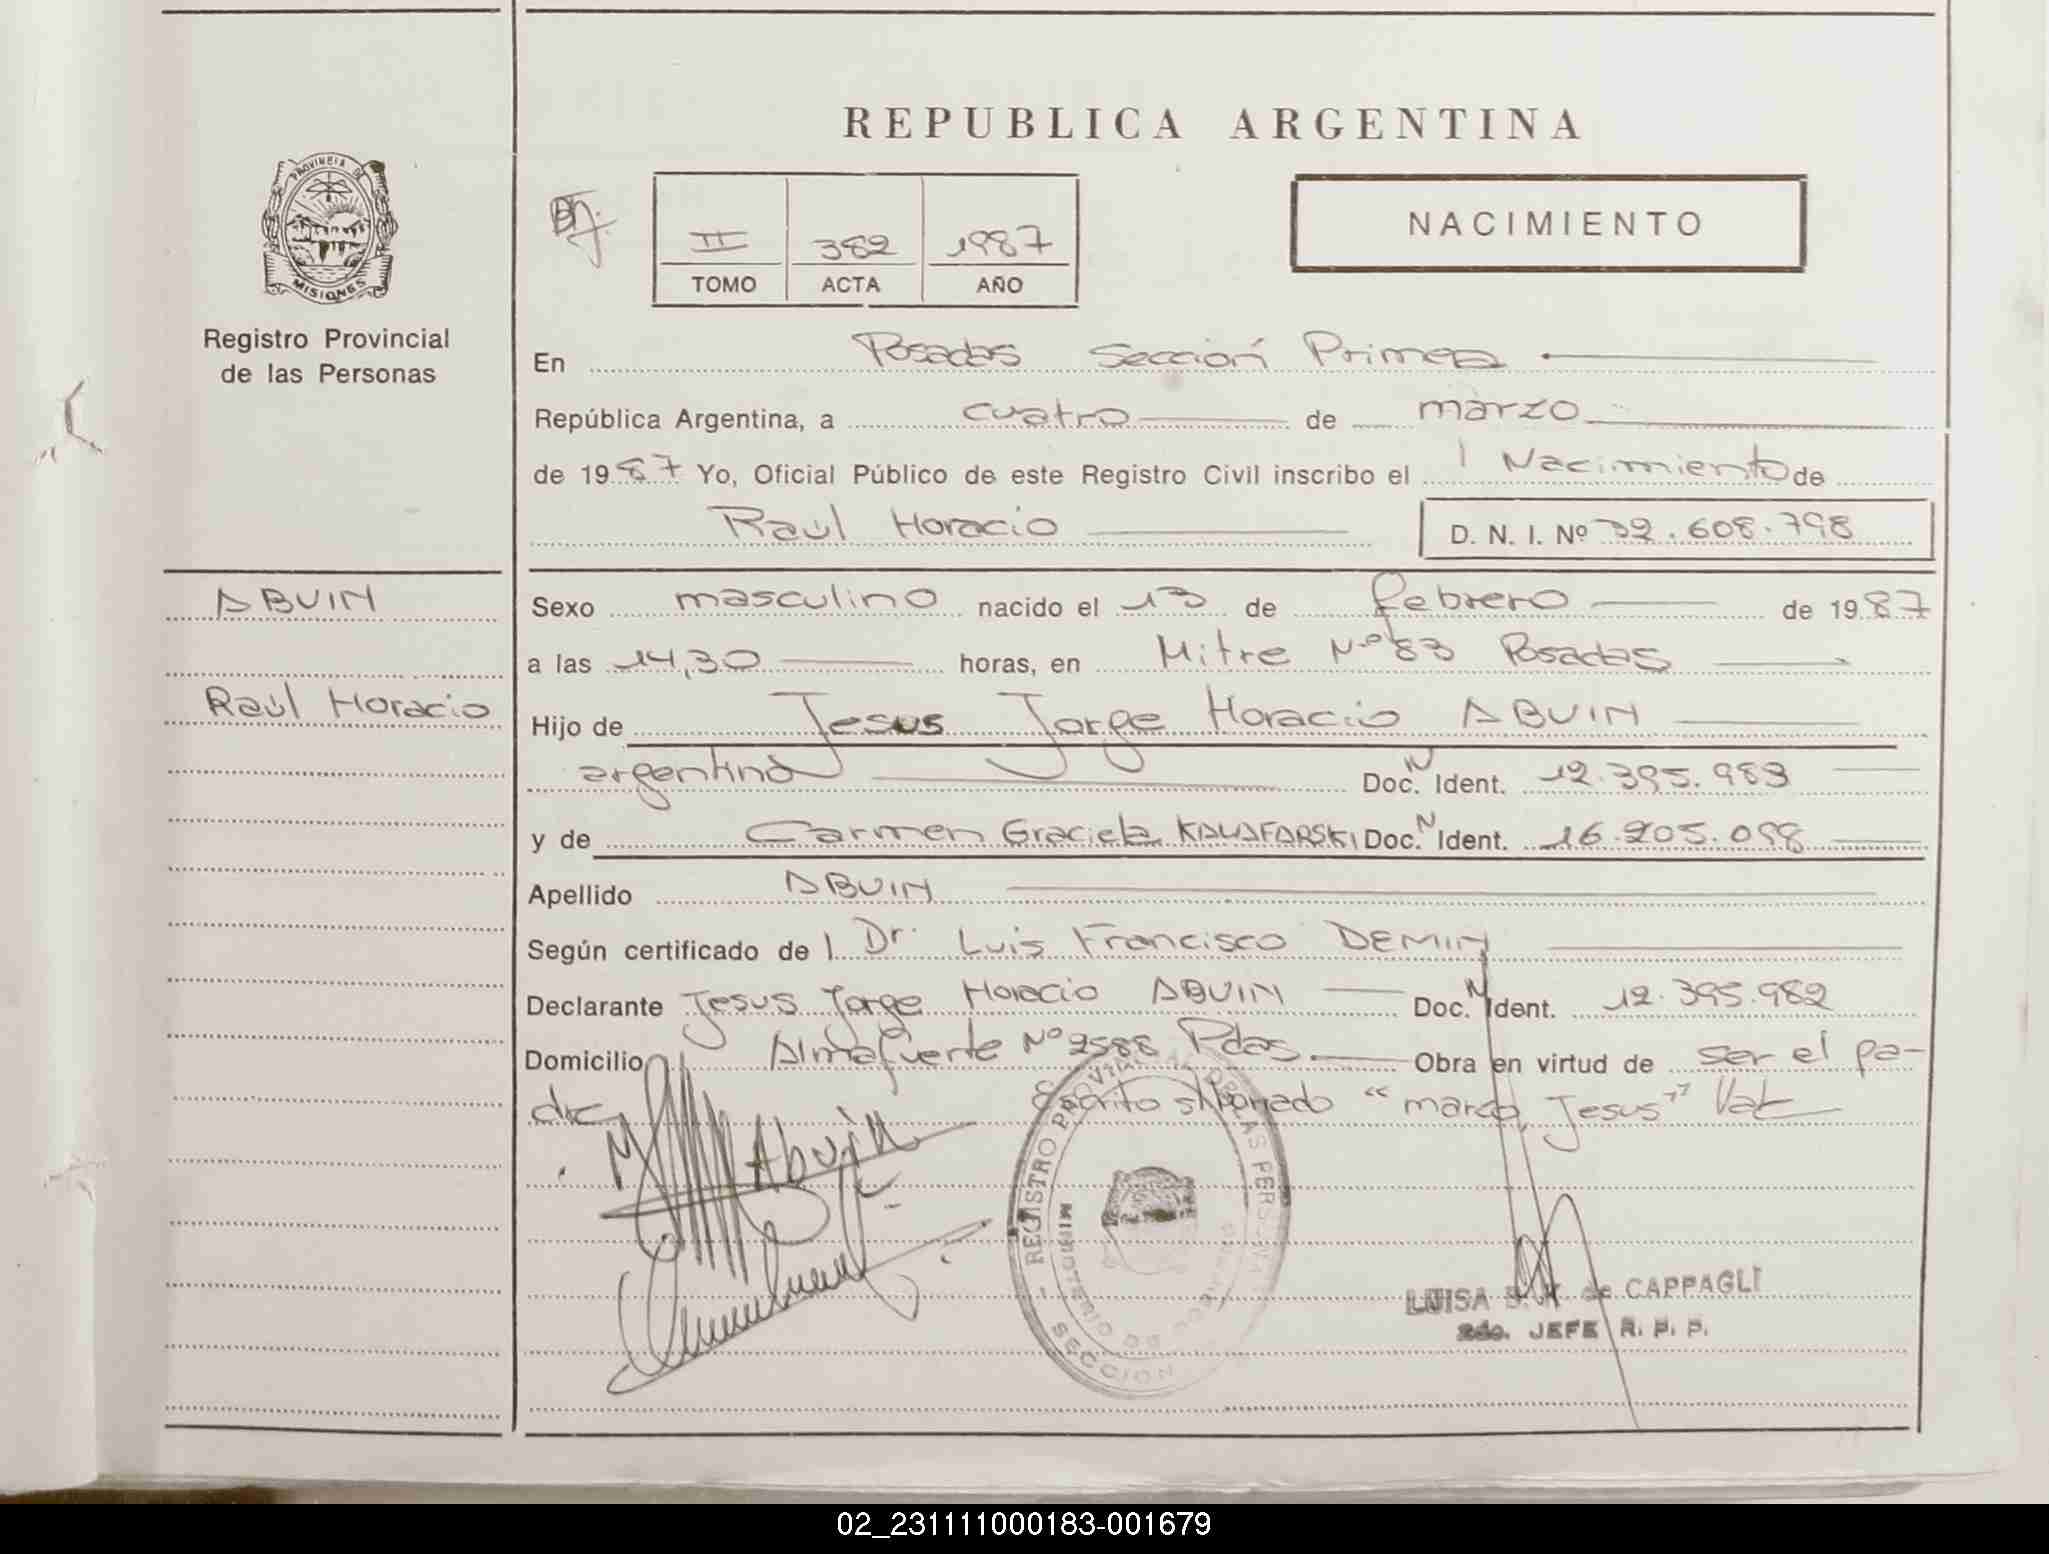 REPUBLICA ARGENTINA
PROVINCIA DE
MISIONES
Registro Provincial
de las Personas
II 382 1987
TOMO ACTA AÑO
NACIMIENTO
En Posadas Sección Primera
República Argentina, a cuatro de marzo
de 1987 Yo, Oficial Público de este Registro Civil inscribo el Nacimiento de
Raúl Horacio D. N. I. Nº 32.608.798
ABUIN
Raúl Horacio
Sexo masculino nacido el 13 de febrero de 1987
a las 14,30 horas, en Mitre Nº 83 Posadas
Hijo de Jesus Jorge Horacio ABUIN
argentina Doc. N Ident. 12.395.983
y de Carmen Graciela KALAFARSKI Doc. N Ident. 16.205.098
Apellido ABUIN
Según certificado de l Dr. Luis Francisco DEMIN
Declarante Jesus Jorge Horacio ABUIN Doc. N Ident. 12.395.982
Domicilio Almafuerte Nº 2588 Pdas. Obra en virtud de ser el pa-
dre Escrito s/borrado "marzo, Jesus" Vale
Abuin
REGISTRO PROVINCIAL DE LAS PERSONAS
SECCION
LUISA de CAPPAGLI
2do. JEFE R. P. P.
02_231111000183-001679